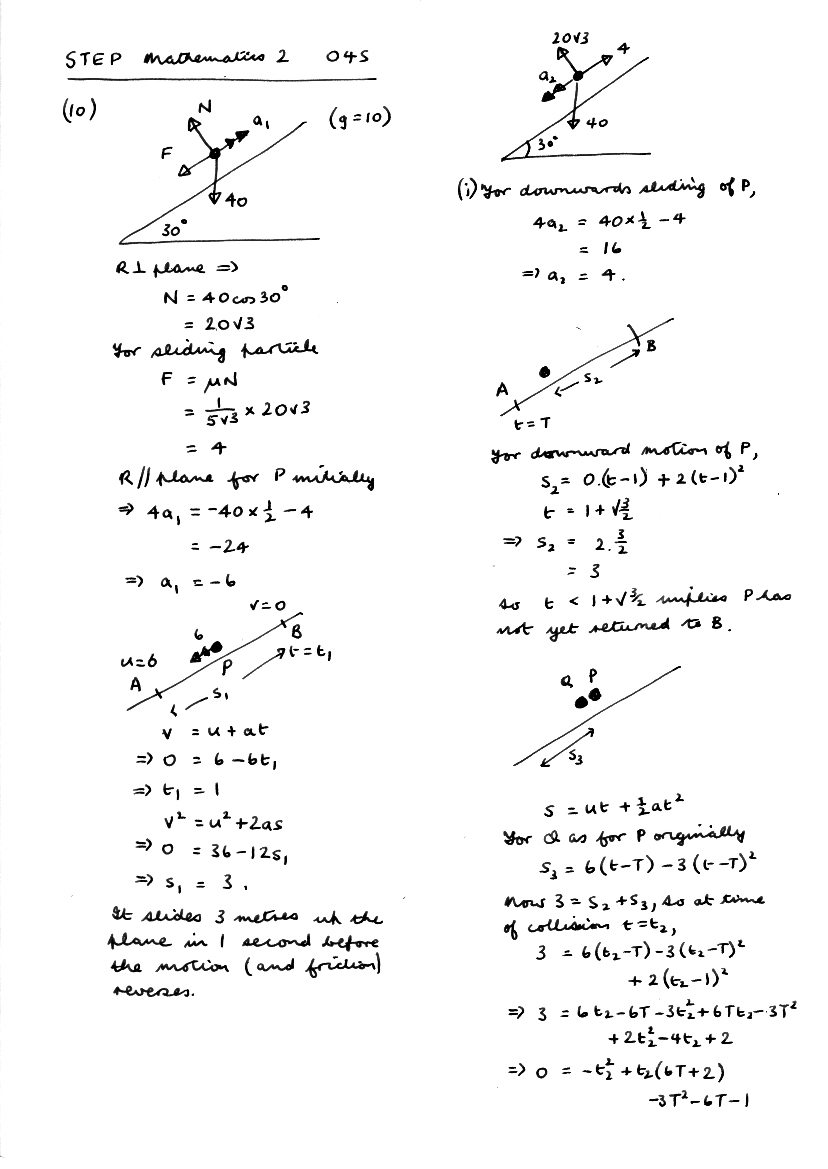 STEP Mathematics 2 04S
(10)
N
a₁
(g=10)
F
40
30°
R⊥ plane =>
N = 40cos30°
= 20√3
For sliding particle
F = μN
= 1/(5√3) × 20√3
= 4
R // plane for P initially
=> 4a₁ = -40 × ½ - 4
= -24
=> a₁ = -6
v=0
6
B
u=6
P
t=t₁
A
S₁
v = u + at
=> 0 = 6 - 6t₁
=> t₁ = 1
v² = u² + 2as
=> 0 = 36 - 12s₁
=> s₁ = 3.
It slides 3 metres up the
plane in 1 second before
the motion (and friction)
reverses.
20√3
4
a₂
40
30°
(i) For downwards sliding of P,
4a₂ = 40 × ½ - 4
= 16
=> a₂ = 4.
B
S₂
A
t=T
For downward motion of P,
S₂ = 0.(t-1) + 2(t-1)²
t = 1 + √(3/2)
=> S₂ = 2.3/2
= 3
so t < 1+√(3/2) implies P has
not yet returned to B.
Q P
S₃
S = ut + ½at²
For Q as for P orginally
S₃ = 6(t-T) - 3(t-T)²
Now 3 = S₂ + S₃, so at time
of collision t=t₂,
3 = 6(t₂-T) - 3(t₂-T)²
+ 2(t₂-1)²
=> 3 = 6t₂ - 6T - 3t₂² + 6Tt₂ - 3T²
+ 2t₂² - 4t₂ + 2
=> 0 = -t₂² + t₂(6T+2)
-3T² - 6T - 1